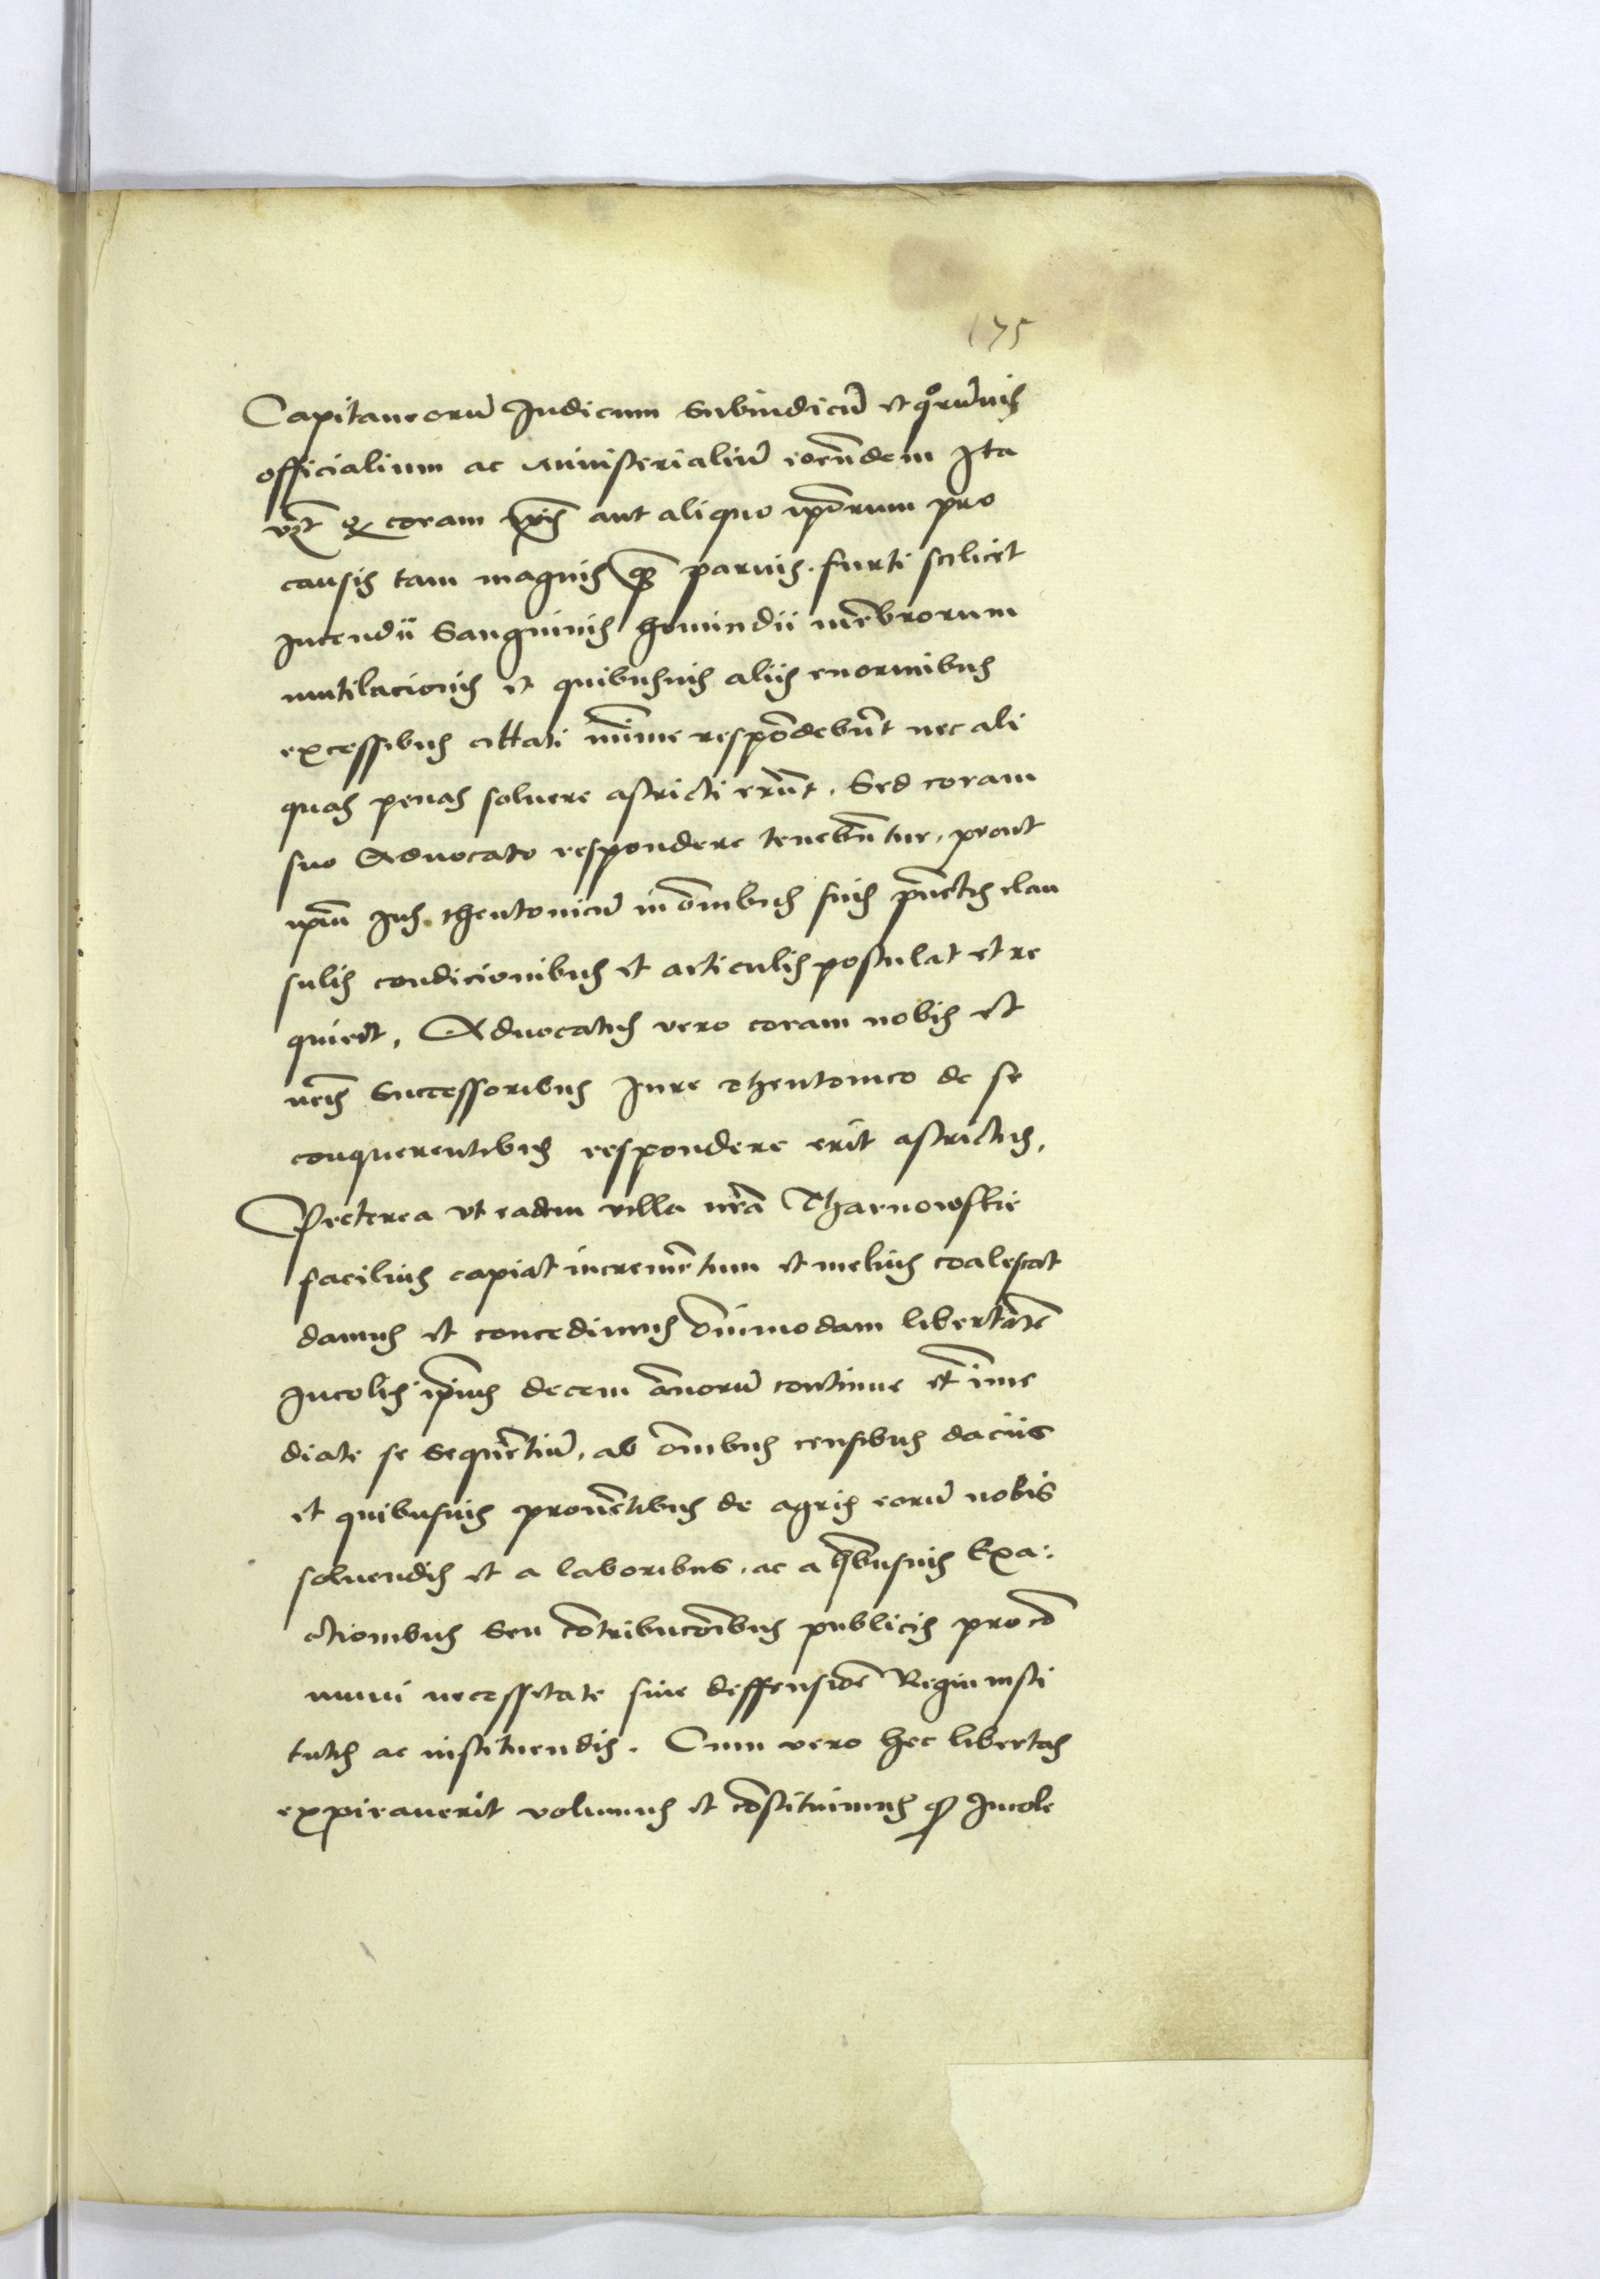 175
Capitaneorū Iudicum Subiudicū et qͦrūuis
officialium ac ministerialiū eorūdem Ita
vꝫt ꝙ coram ip̄is aut aliquo ip̄orum pro
causis tam magnis qͣꝫ paruis. furti scilicet
Incendii Sanguinis homicidii mēbrorum
mutilacionis et quibusuis aliis enormibus
excessibus cittati mīme respōdebūt nec ali
quas penas soluere astricti erūt. Sed coram
suo Aduocato respondere tenebūtur, prout
ip̄m Ius theutonicū in om̄ibus suis pūctis clau
sulis condicionibus et articulis postulat et re
quirit, Aduocatus vero coram nobis et
nr̄is Successoribus Iure Theutonico de se
conquerentibus respondere erit astrictus.
Preterea vt eadem villa nr̄a Tharnowskie
facilius capiat incremētum et melius coalescat
damus et concedimus om̄imodam libertatē
Incolis ip̄ius decem ānorū continue et īme
diate se Sequētiū, ab om̄ibus censibus daciis
et quibusuis prouētibus de agris eorū nobis
soluendis et a laboribus, ac a qͥbusuis Exa:
ctionibus Seu cōtribucōibus publicis pro cō
muni necessitate siue deffensiōe Regni insti
tutis ac instituendis. Cum vero hec libertas
expirauerit volumus et cōstituimus ꝙ Incole